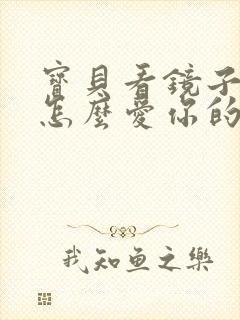 寶貝看鏡子
怎麼愛你的
我知鱼之樂